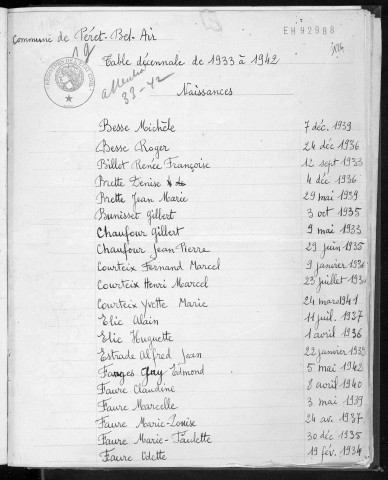 EM 92988
Commune de Péret-Bel-Air
Table décennale de 1933 à 1942
33-42
Naissances
Besse Michèle 7 déc. 1939
Besse Roger 24 déc 1936
Billot Renée Françoise 12 sept 1933
Brette Denise 4 déc 1936
Brette Jean Marie 29 mai 1939
Bunisset Gilbert 3 oct 1935
Chaufour Gilbert 9 mai 1933
Chaufour Jean-Pierre 29 juin 1935
Courteix Fernand Marcel 9 janvier
Courteix Henri Marcel 23 juillet
Courteix Yvette Marie 24 mars 1941
Elie Alain 11 juil. 1937
Elie Huguette 1 avril 1936
Estrade Alfred Jean 22 janvier
Farges Guy Edmond 5 mai 1942
Faure Claudine 8 avril 1940
Faure Marcelle 3 mai 1939
Faure Marie-Louise 24 av. 1937
Faure Marie-Paulette 30 déc 1935
Faure Odette 19 fév. 1934